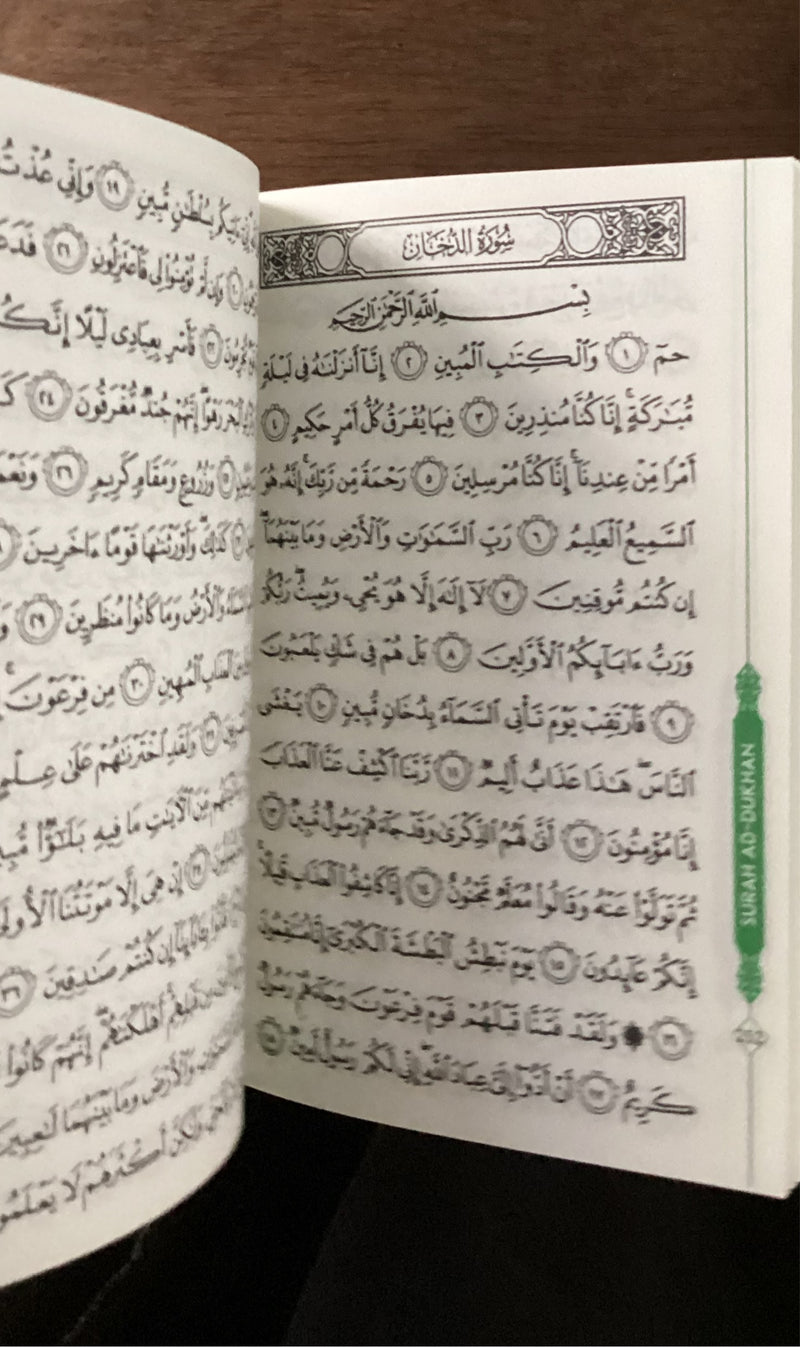 سُورَةُ الدُّخَانِ
بِسْمِ ٱللَّهِ ٱلرَّحْمَٰنِ ٱلرَّحِيمِ
حمٓ ١ وَٱلْكِتَٰبِ ٱلْمُبِينِ ٢ إِنَّآ أَنزَلْنَٰهُ فِى لَيْلَةٍ
مُّبَٰرَكَةٍ ۚ إِنَّا كُنَّا مُنذِرِينَ ٣ فِيهَا يُفْرَقُ كُلُّ أَمْرٍ حَكِيمٍ ٤
أَمْرًا مِّنْ عِندِنَآ ۚ إِنَّا كُنَّا مُرْسِلِينَ ٥ رَحْمَةً مِّن رَّبِّكَ ۚ إِنَّهُۥ هُوَ
ٱلسَّمِيعُ ٱلْعَلِيمُ ٦ رَبِّ ٱلسَّمَٰوَٰتِ وَٱلْأَرْضِ وَمَا بَيْنَهُمَآ ۖ
إِن كُنتُم مُّوقِنِينَ ٧ لَآ إِلَٰهَ إِلَّا هُوَ يُحْىِۦ وَيُمِيتُ ۖ رَبُّكُمْ
وَرَبُّ ءَابَآئِكُمُ ٱلْأَوَّلِينَ ٨ بَلْ هُمْ فِى شَكٍّ يَلْعَبُونَ
٩ فَٱرْتَقِبْ يَوْمَ تَأْتِى ٱلسَّمَآءُ بِدُخَانٍ مُّبِينٍ ١٠ يَغْشَى
ٱلنَّاسَ ۖ هَٰذَا عَذَابٌ أَلِيمٌ ١١ رَّبَّنَا ٱكْشِفْ عَنَّا ٱلْعَذَابَ
إِنَّا مُؤْمِنُونَ ١٢ أَنَّىٰ لَهُمُ ٱلذِّكْرَىٰ وَقَدْ جَآءَهُمْ رَسُولٌ مُّبِينٌ ١٣
ثُمَّ تَوَلَّوْا۟ عَنْهُ وَقَالُوا۟ مُعَلَّمٌ مَّجْنُونٌ ١٤ إِنَّا كَاشِفُوا۟ ٱلْعَذَابِ قَلِيلًا ۚ
إِنَّكُمْ عَآئِدُونَ ١٥ يَوْمَ نَبْطِشُ ٱلْبَطْشَةَ ٱلْكُبْرَىٰٓ إِنَّا مُنتَقِمُونَ
١٦ ۞ وَلَقَدْ فَتَنَّا قَبْلَهُمْ قَوْمَ فِرْعَوْنَ وَجَآءَهُمْ رَسُولٌ
كَرِيمٌ ١٧ أَنْ أَدُّوٓا۟ إِلَىَّ عِبَادَ ٱللَّهِ ۖ إِنِّى لَكُمْ رَسُولٌ أَمِينٌ ١٨
SURAH AD-DUKHAN
بِسُلْطَٰنٍ مُّبِينٍ ١٩ وَإِنِّى عُذْتُ
وَإِن لَّمْ تُؤْمِنُوا۟ لِى فَٱعْتَزِلُونِ ٢١
٢٢ فَأَسْرِ بِعِبَادِى لَيْلًا
رَهْوًا ۖ إِنَّهُمْ جُندٌ مُّغْرَقُونَ ٢٤
وَزُرُوعٍ وَمَقَامٍ كَرِيمٍ ٢٦
كَذَٰلِكَ ۖ وَأَوْرَثْنَٰهَا قَوْمًا ءَاخَرِينَ
وَٱلْأَرْضُ وَمَا كَانُوا۟ مُنظَرِينَ ٢٩
ٱلْعَذَابِ ٱلْمُهِينِ ٣٠ مِن فِرْعَوْنَ ۚ
وَلَقَدِ ٱخْتَرْنَٰهُمْ عَلَىٰ عِلْمٍ
مِّنَ ٱلْءَايَٰتِ مَا فِيهِ بَلَٰٓؤٌا۟
إِنْ هِىَ إِلَّا مَوْتَتُنَا
إِن كُنتُمْ صَٰدِقِينَ ٣٦
مِن قَبْلِهِمْ ۚ أَهْلَكْنَٰهُمْ ۖ إِنَّهُمْ كَانُوا۟
وَٱلْأَرْضَ وَمَا بَيْنَهُمَا لَٰعِبِينَ
وَلَٰكِنَّ أَكْثَرَهُمْ لَا